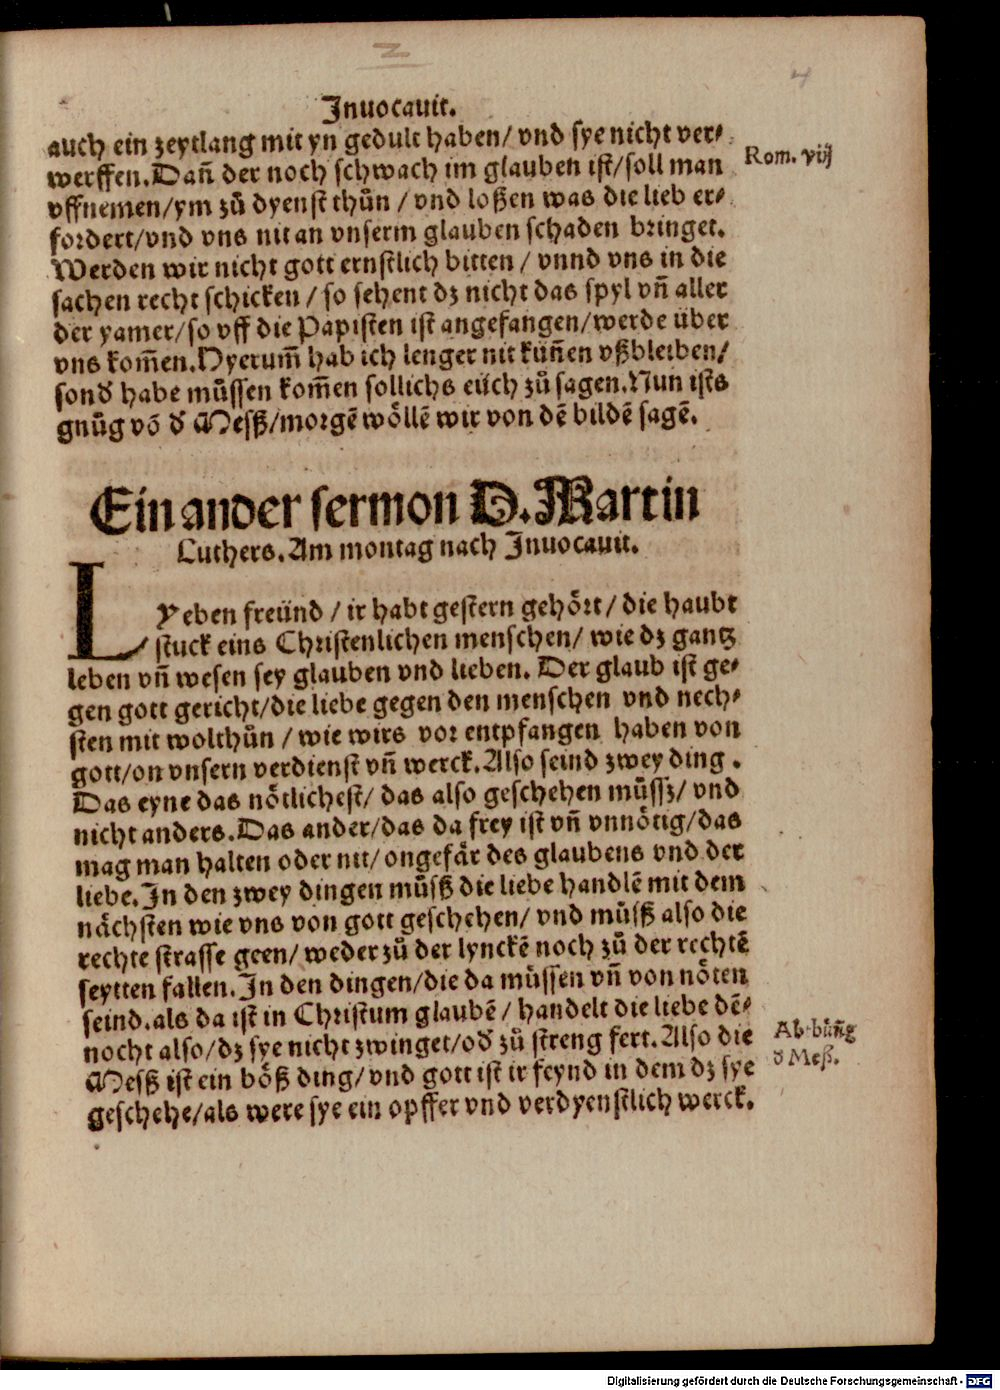 2
4
Inuocauit.
auch ein zeytlang mit yn gedult haben/ vnd sye nicht ver⸗
werffen. Dañ der noch schwach im glauben ist/ soll man
vffnemen/ ym zů dyenst thůn / vnd loßen was die lieb er⸗
fordert/ vnd vns nit an vnserm glauben schaden bringet.
Werden wir nicht gott ernstlich bitten / vnnd vns in die
sachen recht schicken / so sehent dz nicht das spyl vñ aller
der yamer/ so vff die Papisten ist angefangen/ werde über
vns kom̃en. Hyerum̃ hab ich lenger nit küñen vßbleiben/
sond̕ habe müssen kom̃en sollichs eüch zů sagen. Nun ists
gnůg võ d̕ Messz/ morgẽ wöllẽ wir von dẽ bildẽ sagẽ.
Rom. viij
Ein ander sermon D. Martin
Luthers. Am montag nach Inuocauit.
LYeben freünd / ir habt gestern gehört/ die haubt
stuck eins Christenlichen menschen/ wie dz gantz
leben vñ wesen sey glauben vnd lieben. Der glaub ist ge⸗
gen gott gericht/ die liebe gegen den menschen vnd nech⸗
sten mit wolthůn / wie wirs vor entpfangen haben von
gott/ on vnsern verdienst vñ werck. Also seind zwey ding.
Das eyne das nötlichest/ das also geschehen můssz/ vnd
nicht anders. Das ander/ das da frey ist vñ vnnötig/ das
mag man halten oder nit/ ongefär des glaubens vnd der
liebe. In den zwey dingen můsß die liebe handlẽ mit dem
nächsten wie vns von gott geschehen/ vnd můsß also die
rechte strasse geen/ weder zů der lynckẽ noch zů der rechtẽ
seytten fallen. In den dingen/ die da müssen vñ von nöten
seind. als da ist in Christum glaubẽ / handelt die liebe dẽ⸗
nocht also/ dz sye nicht zwinget/ od̕ zů streng fert. Also die
Messz ist ein bösz ding/ vnd gott ist ir feynd in dem dz sye
geschehe/ als were sye ein opffer vnd verdyenstlich werck.
d̕ Meß.
Digitalisierung gefördert durch die Deutsche Forschungsgemeinschaft - DFG